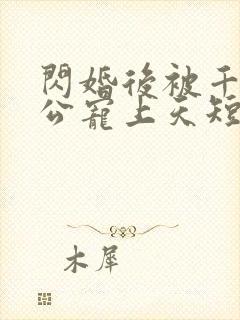 閃婚後被千
公寵上天短
木犀